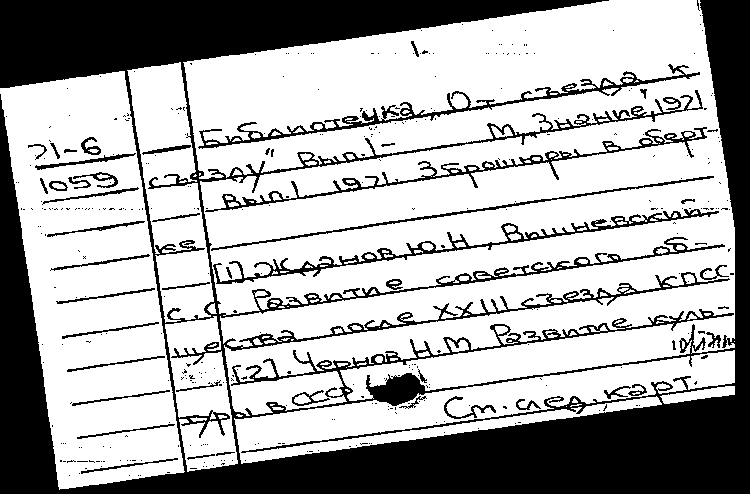 1.
71-6
1059
Библиотечка „От съезда к
съезду" Вып.1- М., „Знание", 1971
Вып.1 1971. 3 брошюры в оберт-
ке
[1]. Жданов, Ю.Н., Вишневский,
С.С. Развитие советского об-
щества после XXIII съезда КПСС
[2]. Чернов, Н.М. Развитие куль-
туры в СССР.
См. след. карт.